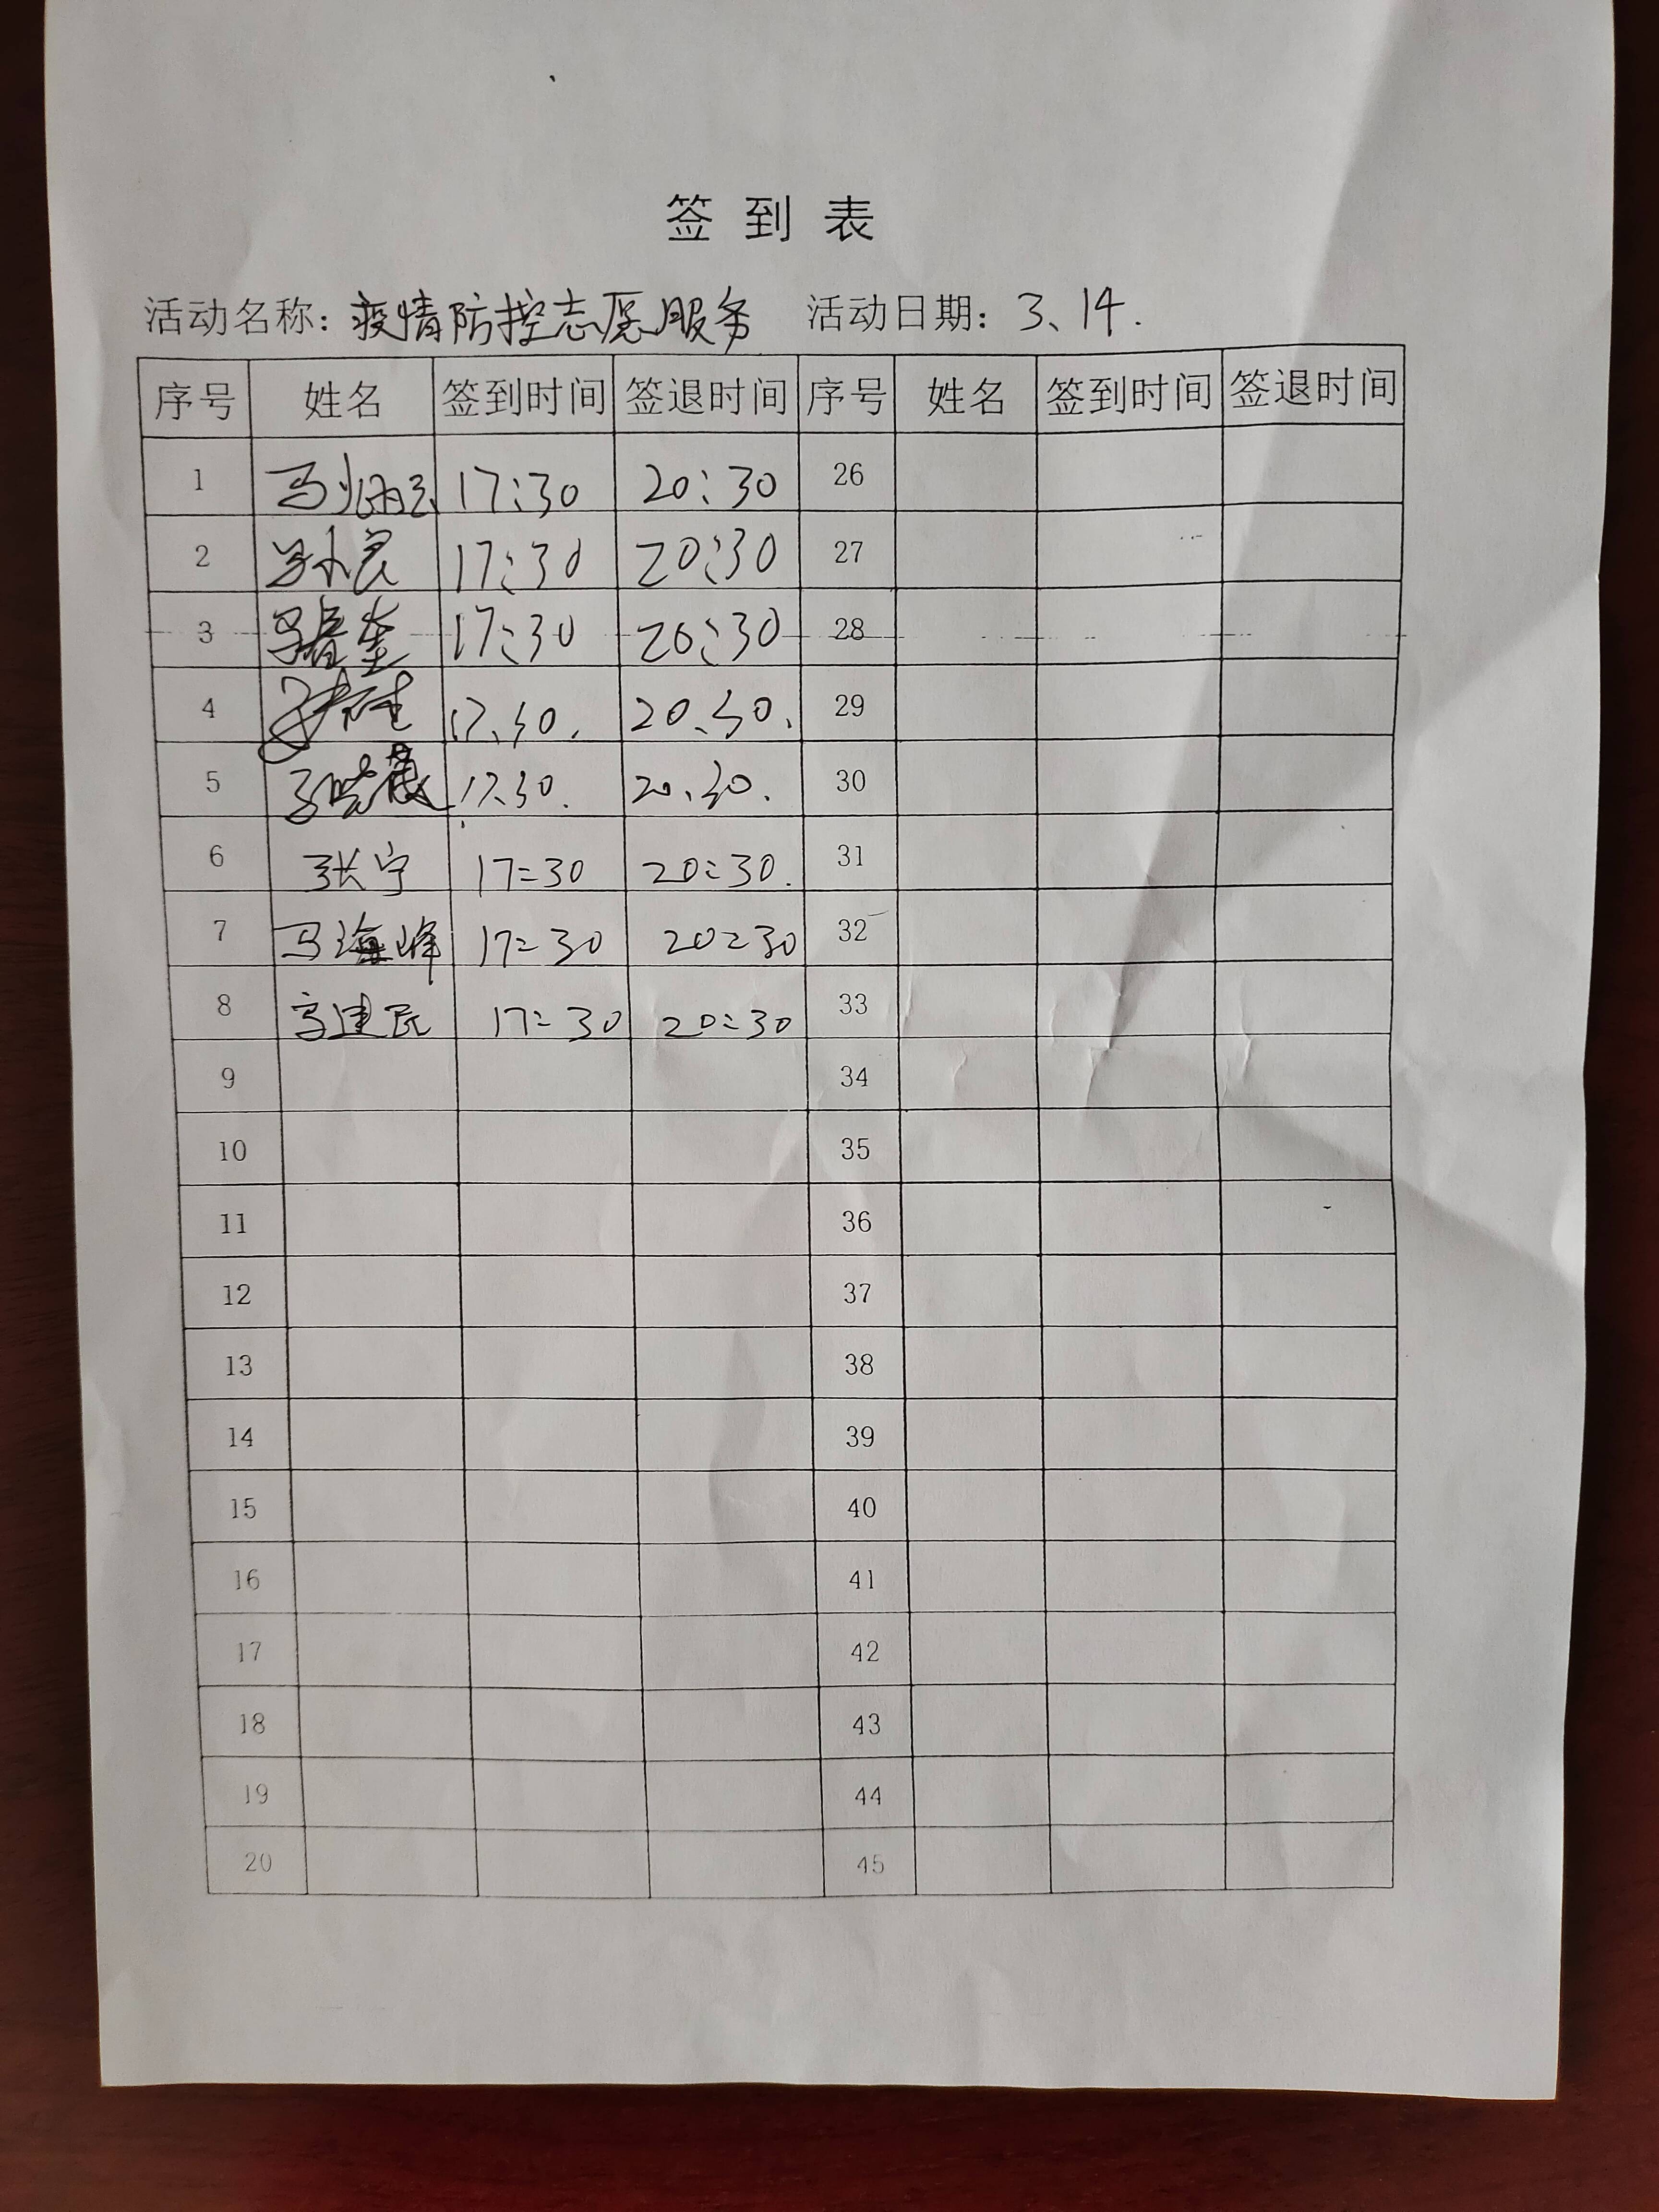 签到表
活动名称：疫情防控志愿服务 活动日期：3、14.
序号 姓名 签到时间 签退时间 序号 姓名 签到时间 签退时间
1 马炳玉 17:30 20:30 26
2 马小良 17:30 20:30 27
3 马春奎 17:30 20:30 28
4 17、30. 20、30. 29
5 17.30. 20.30. 30
6 张宁 17:30 20:30. 31
7 马海峰 17:30 20:30 32
8 高建民 17:30 20:30 33
9 34
10 35
11 36
12 37
13 38
14 39
15 40
16 41
17 42
18 43
19 44
20 45